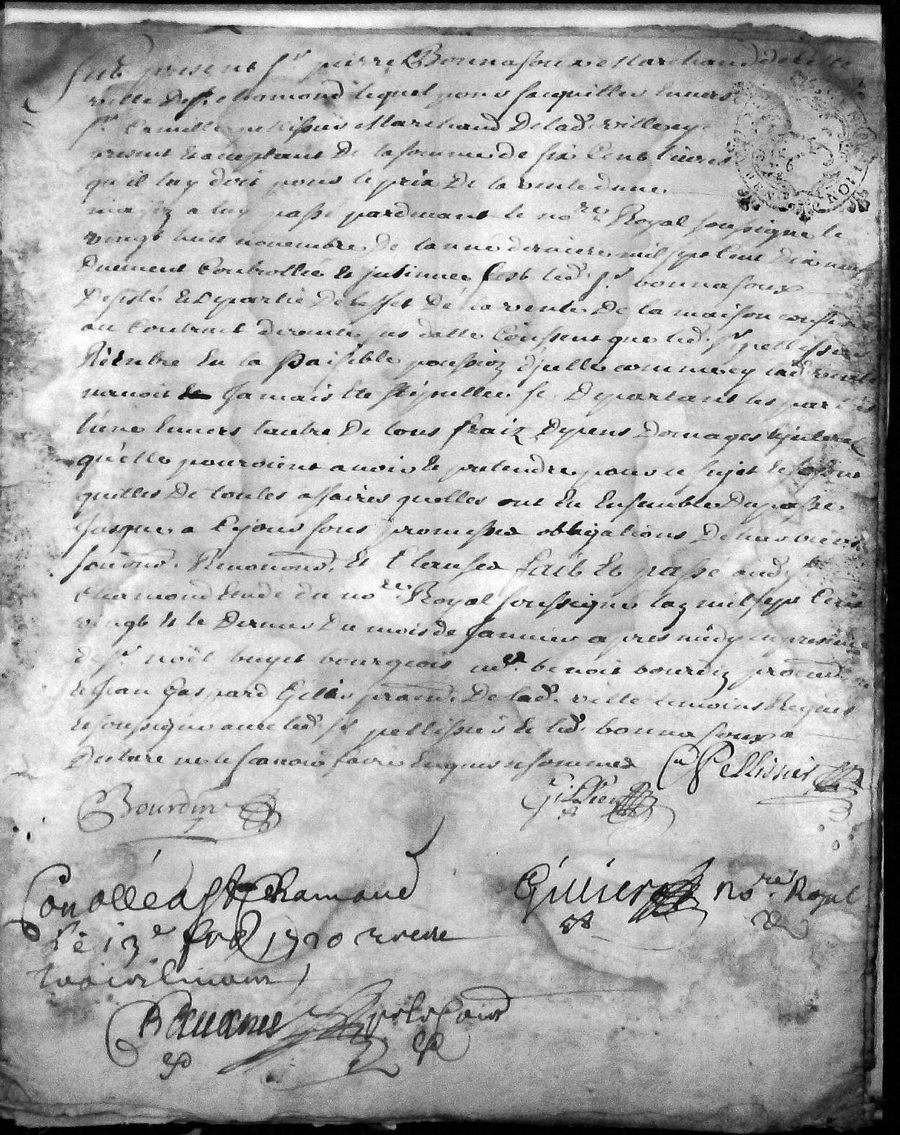 fut present Sr pierre Bonnafoux Marchand de cette
ville de St chamond lequel pour sacquitter envers
Sr Camille pellissier Marchand de lad. ville icy
present et aceptant de la somme de six Cent livres
qu'il luy doit pour le prix de la vente dune
maison a luy passé pardevant le nore Royal soussigné le
vingt huit novembre de lanné derniere mil sept cent dix neuf
duement Controllée et insinuee sest led. Sr bonnafoux
desisté et departie de leffet de la vente de la maison
au Contract de vente sus datté Consent que led. Sr pellissier
Rientre en la paisible possession dicelle comme sy lad. vente
navoit jamais ete stipullee se departant les parties
lune envers lautre de tous fraix depens domages interets
quelles pouroient avoir et pretendre pour ce sujet et se sont
quittes de toutes affaires quelles ont eu Ensembles du passé
jusque a ce jour sous promesses obligations de leurs biens
soumons. Renonons. et Clauses fait et passé aud. St
chamond étude du nore Royal soussigné lan mil sept Cent
vingt et le dernier du mois de Janvier apres midy en presence
de Sr noël buyet bourgeois me benoit bourdin
et jean Gaspard Gillier praticien de lad. ville temoins Requis
et soussignés avec led. Sr pellissier et led. bonnafoux a
declaré ne le sçavoir faire Enquis et sommé
C Pellissier
Bourdin
Gillier
Conollé a St Chamond
Gillier nore Royal
Le 13e fev 1720 Receu